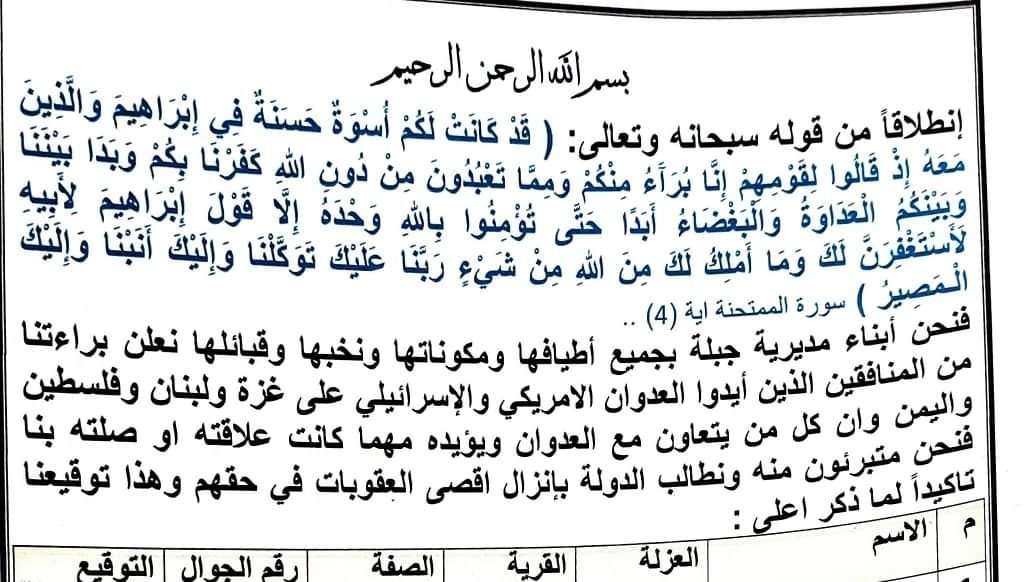 بسم الله الرحمن الرحيم
إنطلاقاً من قوله سبحانه وتعالى: ( قَدْ كَانَتْ لَكُمْ أُسْوَةٌ حَسَنَةٌ فِي إِبْرَاهِيمَ وَالَّذِينَ
مَعَهُ إِذْ قَالُوا لِقَوْمِهِمْ إِنَّا بُرَآءُ مِنْكُمْ وَمِمَّا تَعْبُدُونَ مِنْ دُونِ اللهِ كَفَرْنَا بِكُمْ وَبَدَا بَيْنَنَا
وَبَيْنَكُمُ الْعَدَاوَةُ وَالْبَغْضَاءُ أَبَدًا حَتَّى تُؤْمِنُوا بِاللهِ وَحْدَهُ إِلَّا قَوْلَ إِبْرَاهِيمَ لِأَبِيهِ
لَأَسْتَغْفِرَنَّ لَكَ وَمَا أَمْلِكُ لَكَ مِنَ اللهِ مِنْ شَيْءٍ رَبَّنَا عَلَيْكَ تَوَكَّلْنَا وَإِلَيْكَ أَنَبْنَا وَإِلَيْكَ
الْمَصِيرُ ) سورة الممتحنة اية (4) ..
فنحن أبناء مديرية جبلة بجميع أطيافها ومكوناتها ونخبها وقبائلها نعلن براءتنا
من المنافقين الذين أيدوا العدوان الامريكي والإسرائيلي على غزة ولبنان وفلسطين
واليمن وان كل من يتعاون مع العدوان ويؤيده مهما كانت علاقته او صلته بنا
فنحن متبرئون منه ونطالب الدولة بإنزال اقصى العقوبات في حقهم وهذا توقيعنا
تاكيداً لما ذكر اعلى :
م الاسم العزلة القرية الصفة رقم الجوال التوقيع